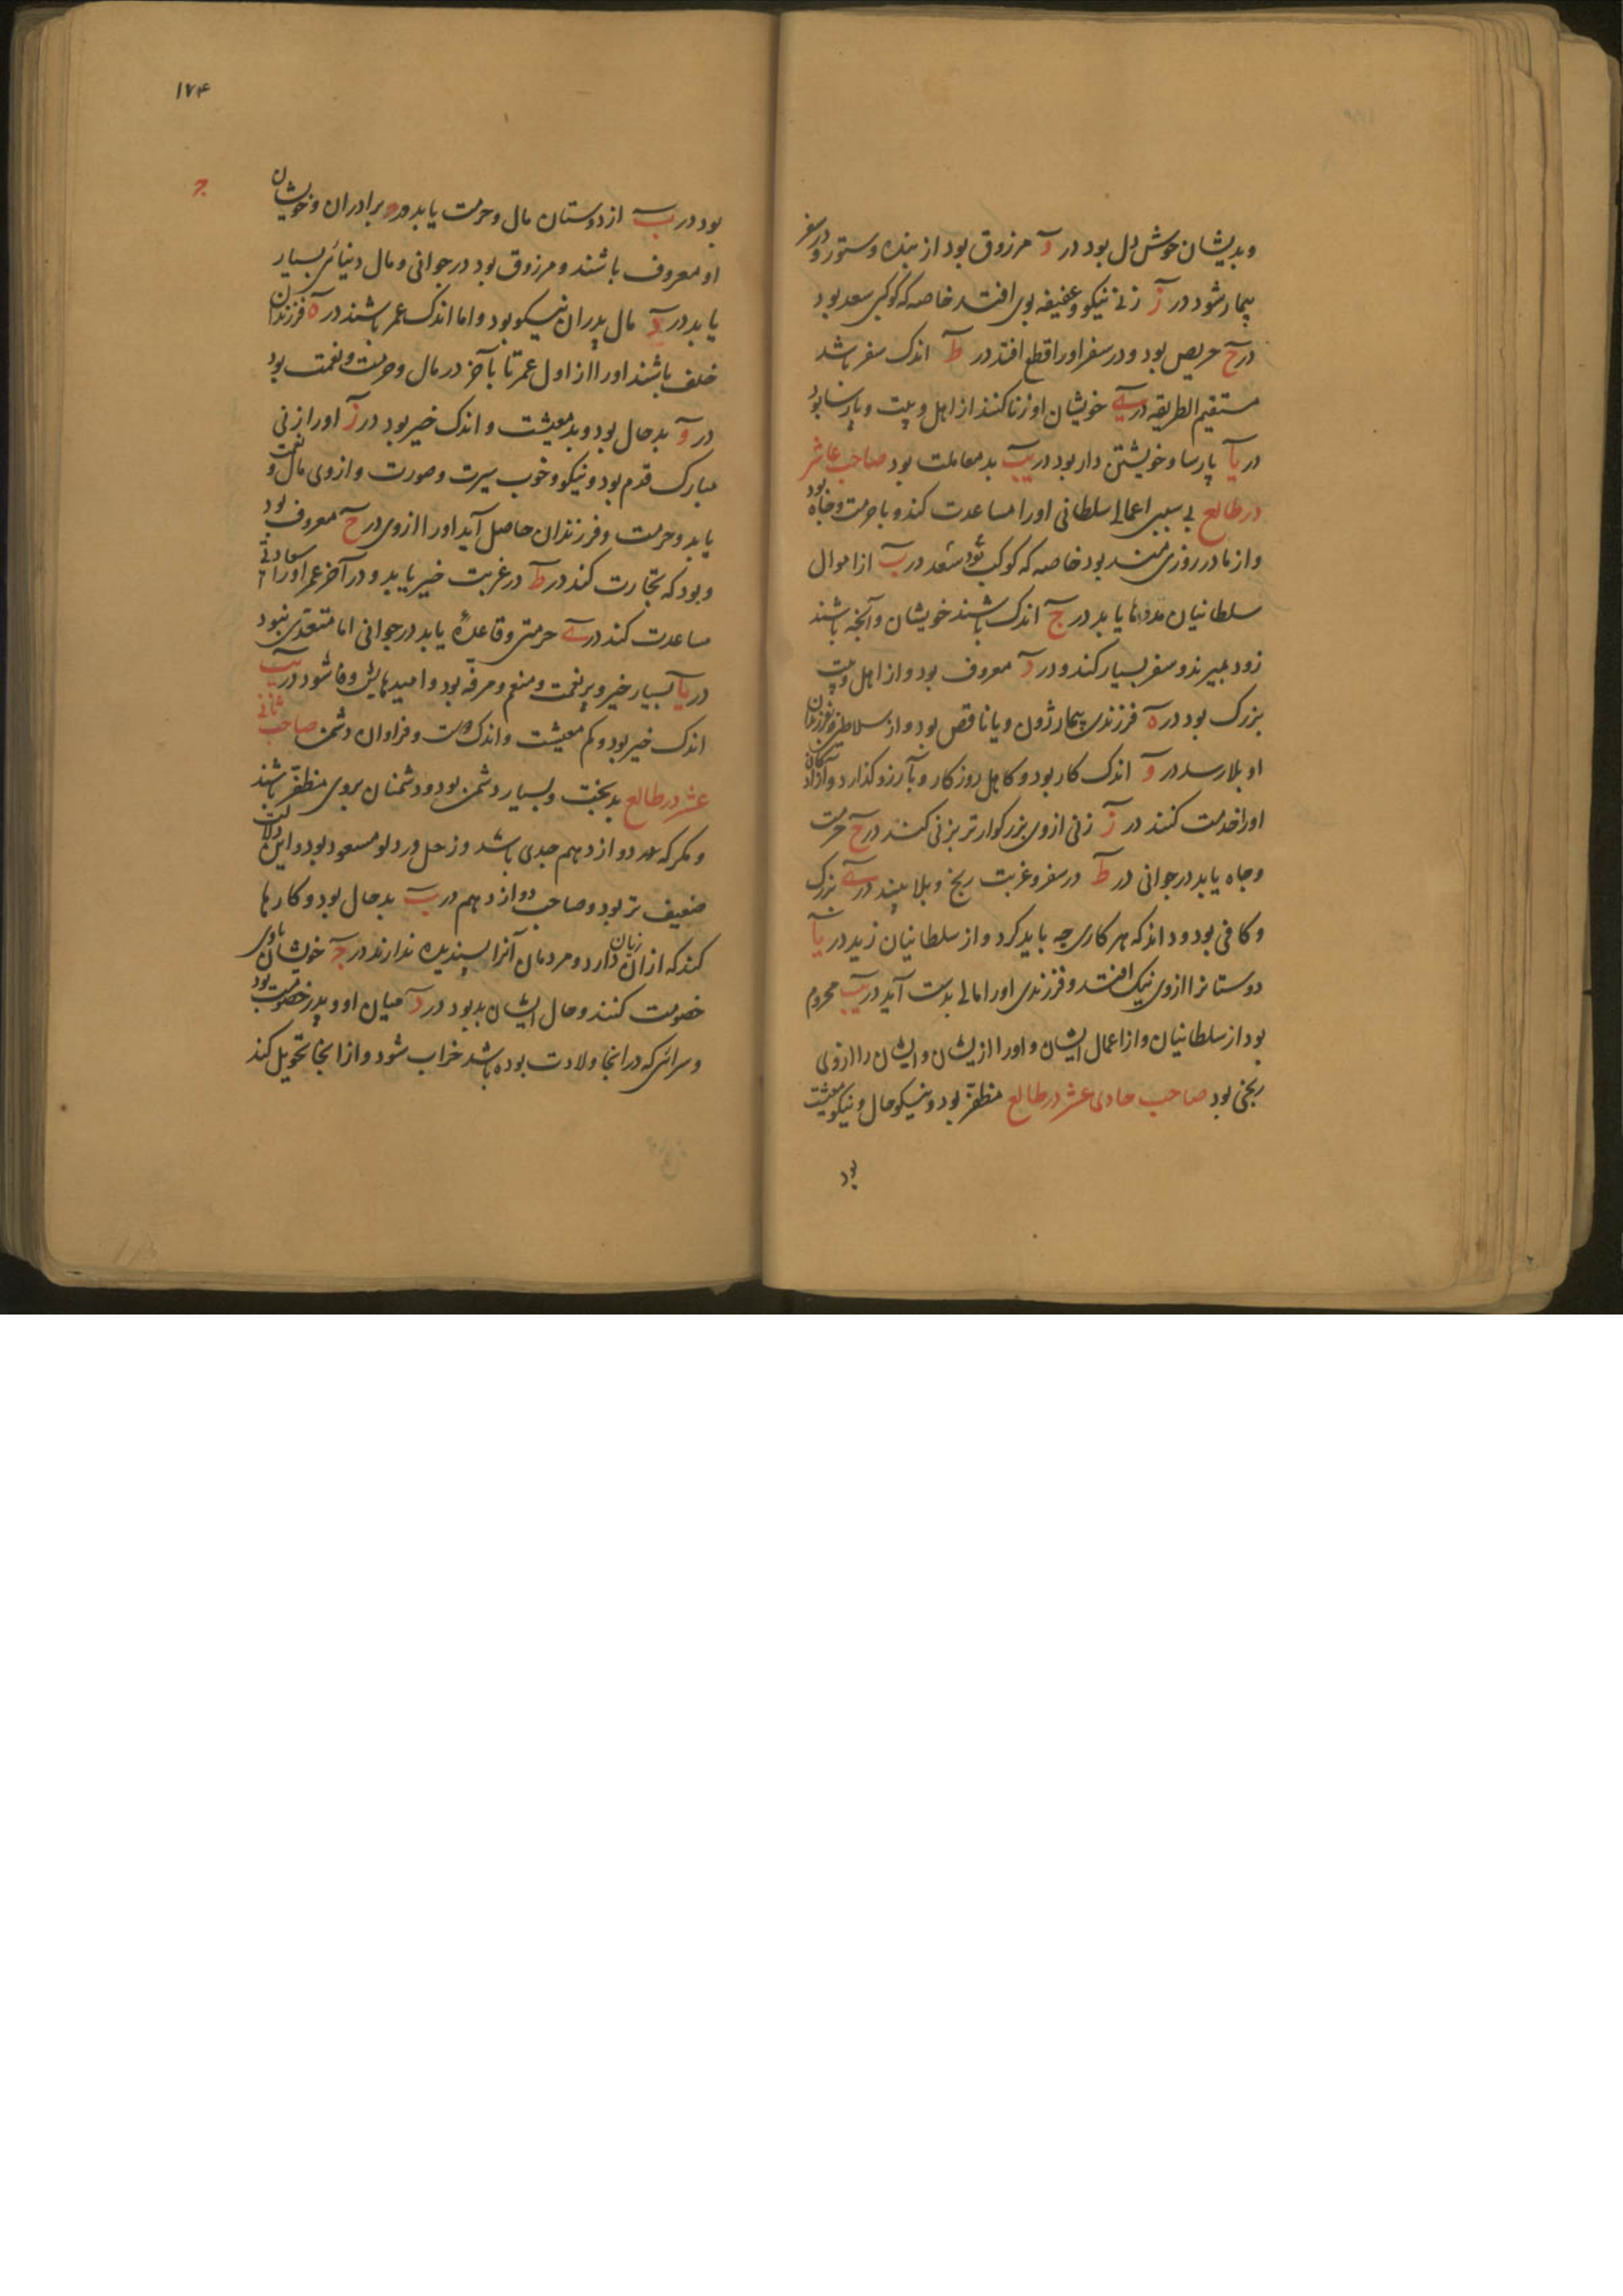 وبدیشان خوش دل بود در وَ مرزوق بود از بنده و ستور و در سفر
بیمار شود در زَ زنی نیکو و عفیفه بوی افتد خاصه که کوکبی سعد بود
در حَ حریص بود و در سفر او را قطع افتد در طَ اندک سفر باشد
مستقیم الطریقه در یَ خویشان او زنا کنند از اهل و بیت و پارسا بود
در یآ پارسا و خویشتن دار بود در یب بد معاملت بود صاحب عاشر
در طالع بی سببی اعمال سلطانی او را مساعدت کند و با حرمت و جاه بود
و از مادر روزی مند بود خاصه که کوکب بود سعد در ب از اموال
سلطانیان مددها یابد در ج اندک باشند خویشان و آنچه باشند
زود بمیرند و سفر بسیار کند و در د معروف بود و از اهل و بیت
بزرک بود در ه فرزندی بیمار زون و یا ناقص بود و از سلاطین فرزندان
او بلا رسد در و اندک کار بود و کاهل روزکار و بآرزو کذارد و آزادکان
او را خدمت کنند در ز زنی از وی بزرکوارتر بزنی کند در ح حرمت
و جاه یابد در جوانی در ط در سفر و غربت رنج و بلا بیند در ی بزرک
و کافی بود و داند که هر کاری چه باید کرد و از سلطانیان زید در یآ
دوستانرا از وی نیک افتد و فرزندی او را مالی بدست آید در یب محروم
بود از سلطانیان و از اعمال ایشان و او را از یشان و ایشان را از وی
رنجی بود صاحب حادی عشر در طالع مظفر بود و نیکو حال و نیکو معیشت
بود
۱۷۴
بود در ب از دوستان مال و حرمت یابد و در ج برادران و خویشان
او معروف باشند و مرزوق بود در جوانی و مال دنیائی بسیار
یابد در د مال پدران نیکو بود و اما اندک عمر باشند در ه فرزندان
خلف باشند او را از اول عمر تا بآخر در مال و حرمت و نعمت بود
در و بد حال بود و بد معیشت و اندک خیر بود در ز او را زنی
مبارک قدم بود و نیکو و خوب سیرت و صورت و از وی مال و نعمت
یابد و حرمت و فرزندان حاصل آید او را از وی در ح معروف بود
و بود که تجارت کند در ط در غربت خیر یابد و در آخر عمر او را سعادتی
مساعدت کند در ی حرمتی و قاعدهٔ یابد در جوانی اما متعدی نبود
در یآ بسیار خیر و پر نعمت و منعم و مرفه بود و امیدهایش وفا شود در یب
اندک خیر بود و کم معیشت و اندک دوست و فراوان دشمن صاحب ثانی
عشر در طالع بدبخت و بسیار دشمن بود و دشمنان بروی مظفر باشند
و مکر که دوازدهم جدی باشد و زحل در دلو مسعود بود و این دلالت
ضعیف تر بود و صاحب دوازدهم در ب بد حال بود و کارها
کند که از ان زیان دارد و مردمان آنرا پسندیده ندارند در ج خویشان با وی
خصومت کنند و حال ایشان بد بود در د میان او و پدر خصومت بود
و سرائی که در انجا ولادت بوده باشد خراب شود و از انجا تحویل کند